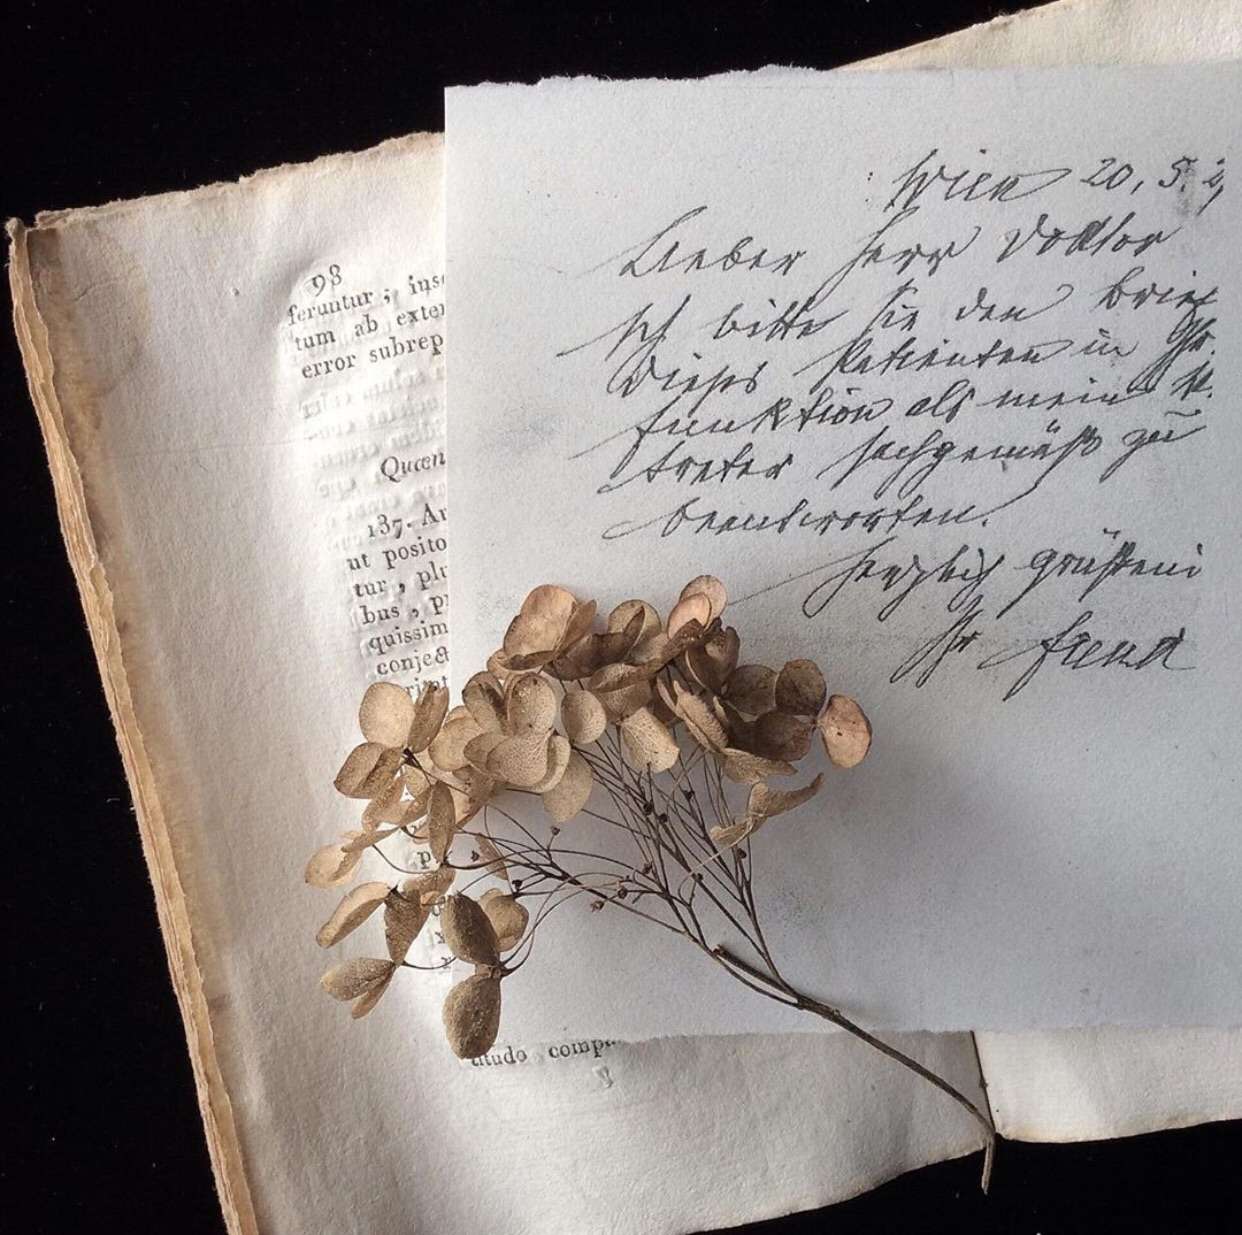 98
feruntur; ins
tum ab exter
error subrep
Quæn
137. Ar
ut posito
tur, plu
bus, p
quissim
conject
itudo comp
Wien 20. 5.
Lieber Herr Doktor
Ich bitte Sie den Brief
dieses Patienten in Ihr.
Funktion als mein V.
treter sachgemäß zu
beantworten.
Herzlich grüßend
Ihr Freud